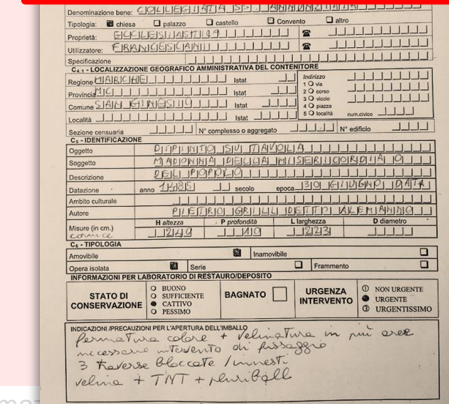 Denominazione bene: COLLEGIATA SS ANNUNZIATA
Tipologia: chiesa palazzo castello Convento altro
Proprietà: ECCLESIASTICA
Utilizzatore: FRANCESCANI
Specificazione
C4.1 - LOCALIZZAZIONE GEOGRAFICO AMMINISTRATIVA DEL CONTENITORE
Regione MARCHE Istat
Indirizzo
1 via
Provincia MC Istat
2 corso
3 vicolo
Comune SAN GINESIO Istat
4 piazza
Località Istat
5 località num.civico
Sezione censuaria N° complesso o aggregato N° edificio
C5 - IDENTIFICAZIONE
Oggetto DIPINTO SU TAVOLA
Soggetto MADONNA DELLA MISERICORDIA O
Descrizione DEL POPOLO
Datazione anno 1485 secolo epoca 30 GIUGNO DATA
Ambito culturale
Autore PIETRO GRILL DETTO ALEMANNO
Misure (in cm.) H altezza P profondità L larghezza D diametro
cornice 249 19 243
C6 - TIPOLOGIA
Amovibile Inamovibile
Opera isolata Serie Frammento
INFORMAZIONI PER LABORATORIO DI RESTAURO/DEPOSITO
STATO DI CONSERVAZIONE
BUONO
SUFFICIENTE
CATTIVO
PESSIMO
BAGNATO
URGENZA INTERVENTO
NON URGENTE
URGENTE
URGENTISSIMO
INDICAZIONI /PRECAUZIONI PER L'APERTURA DELL'IMBALLO
fermatura colore + velinatura in più aree
necessario intervento di fissaggio
3 traverse bloccate / innesti
velina + TNT + pluriball